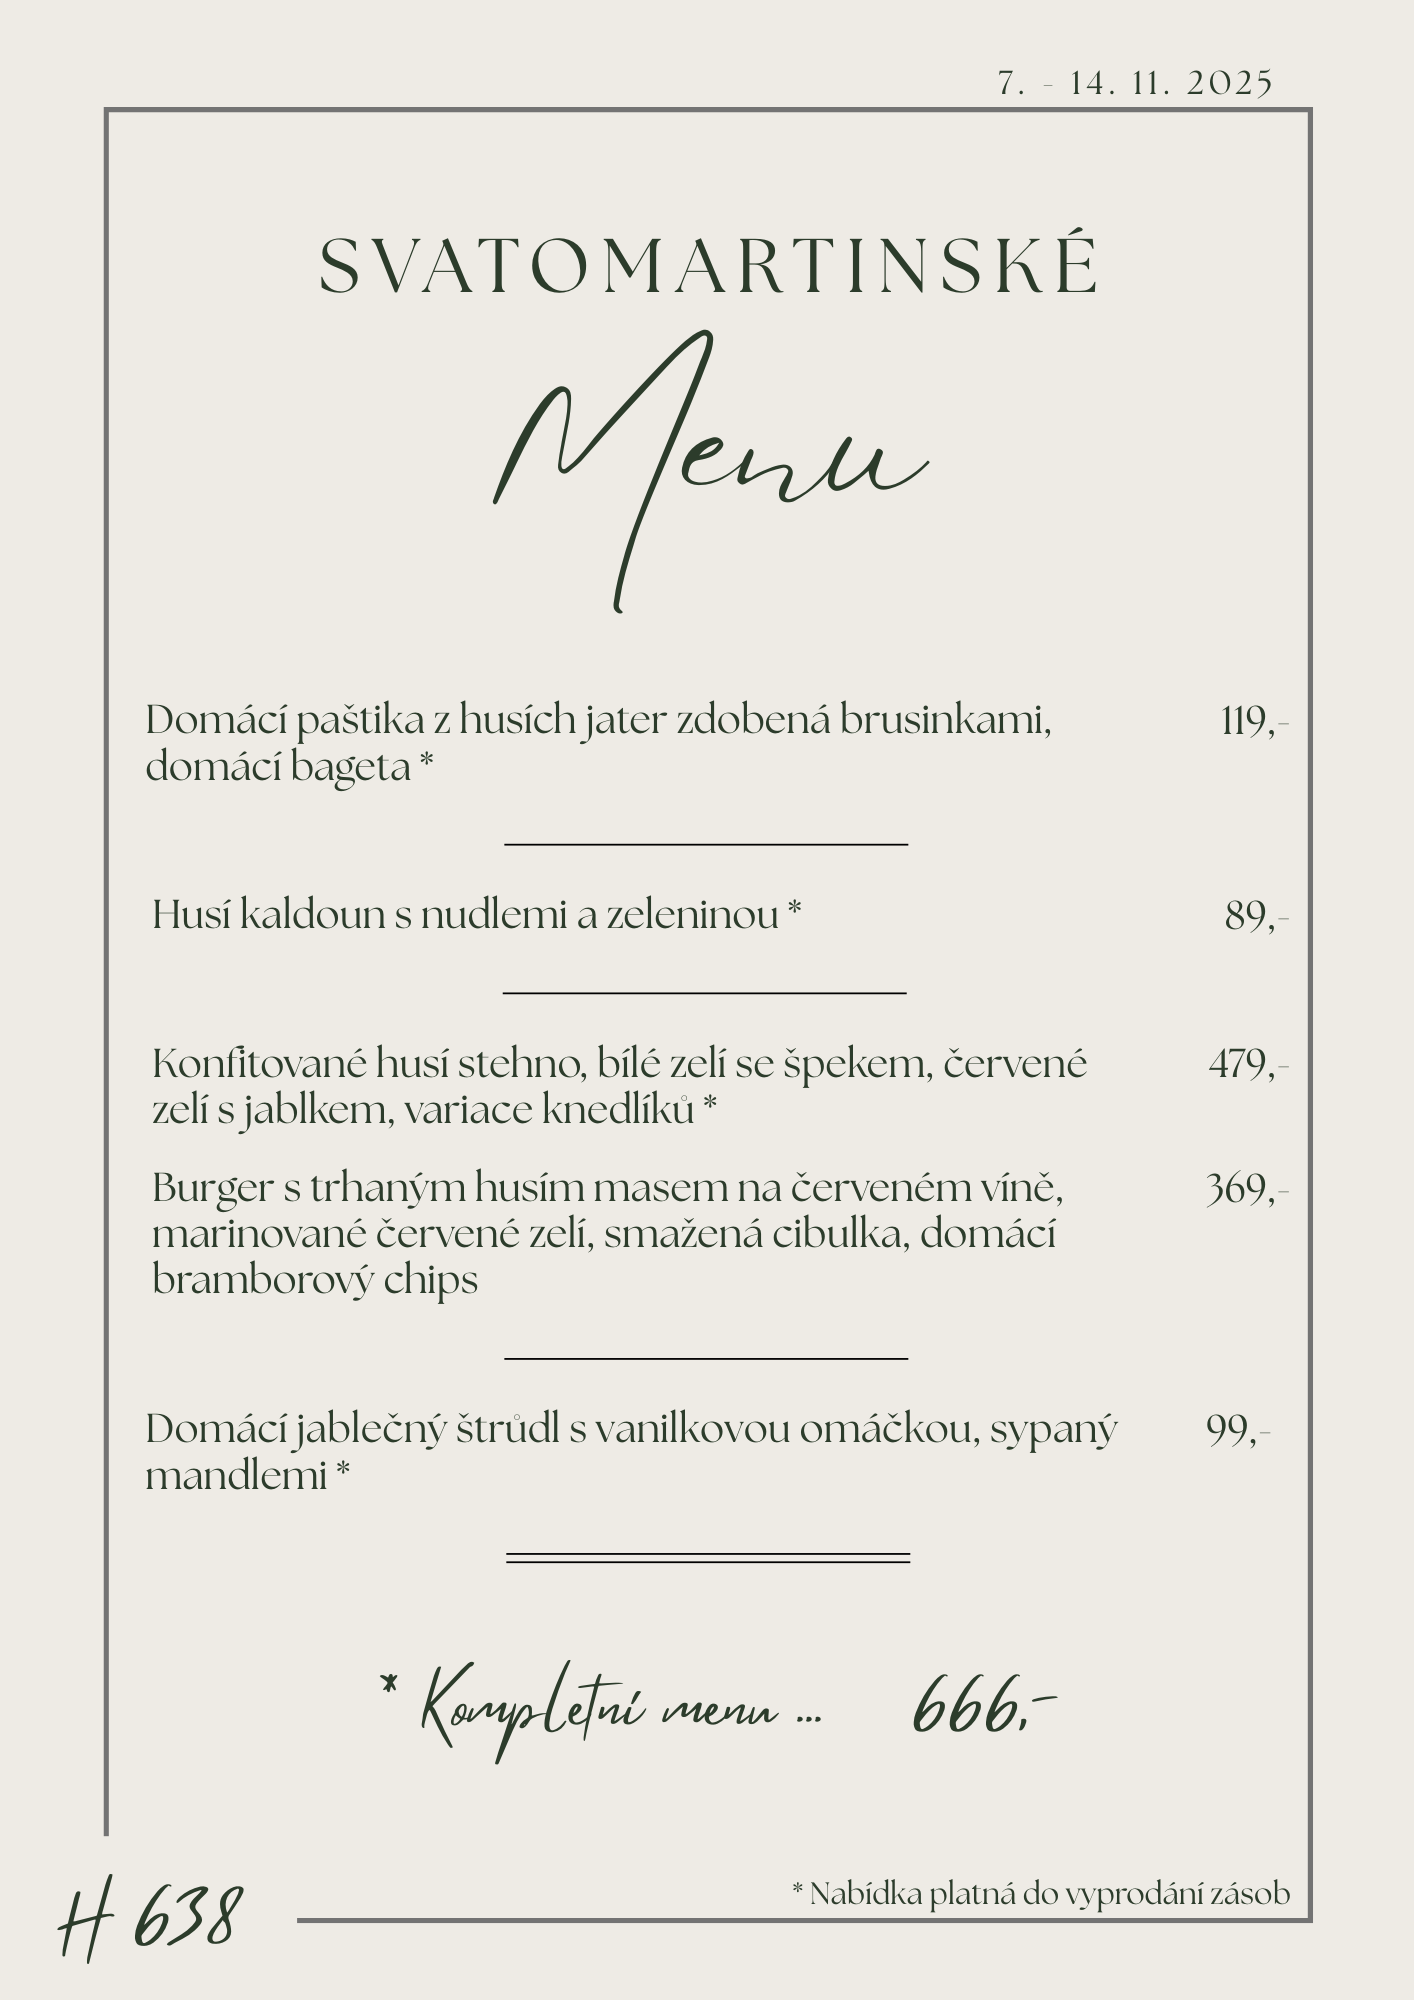 7. - 14. 11. 2025
SVATOMARTINSKÉ
Menu
Domácí paštika z husích jater zdobená brusinkami, 119,-
domácí bageta *
Husí kaldoun s nudlemi a zeleninou * 89,-
Konfitované husí stehno, bílé zelí se špekem, červené 479,-
zelí s jablkem, variace knedlíků *
Burger s trhaným husím masem na červeném víně, 369,-
marinované červené zelí, smažená cibulka, domácí
bramborový chips
Domácí jablečný štrůdl s vanilkovou omáčkou, sypaný 99,-
mandlemi *
* Kompletní menu ... 666,-
* Nabídka platná do vyprodání zásob
H 638